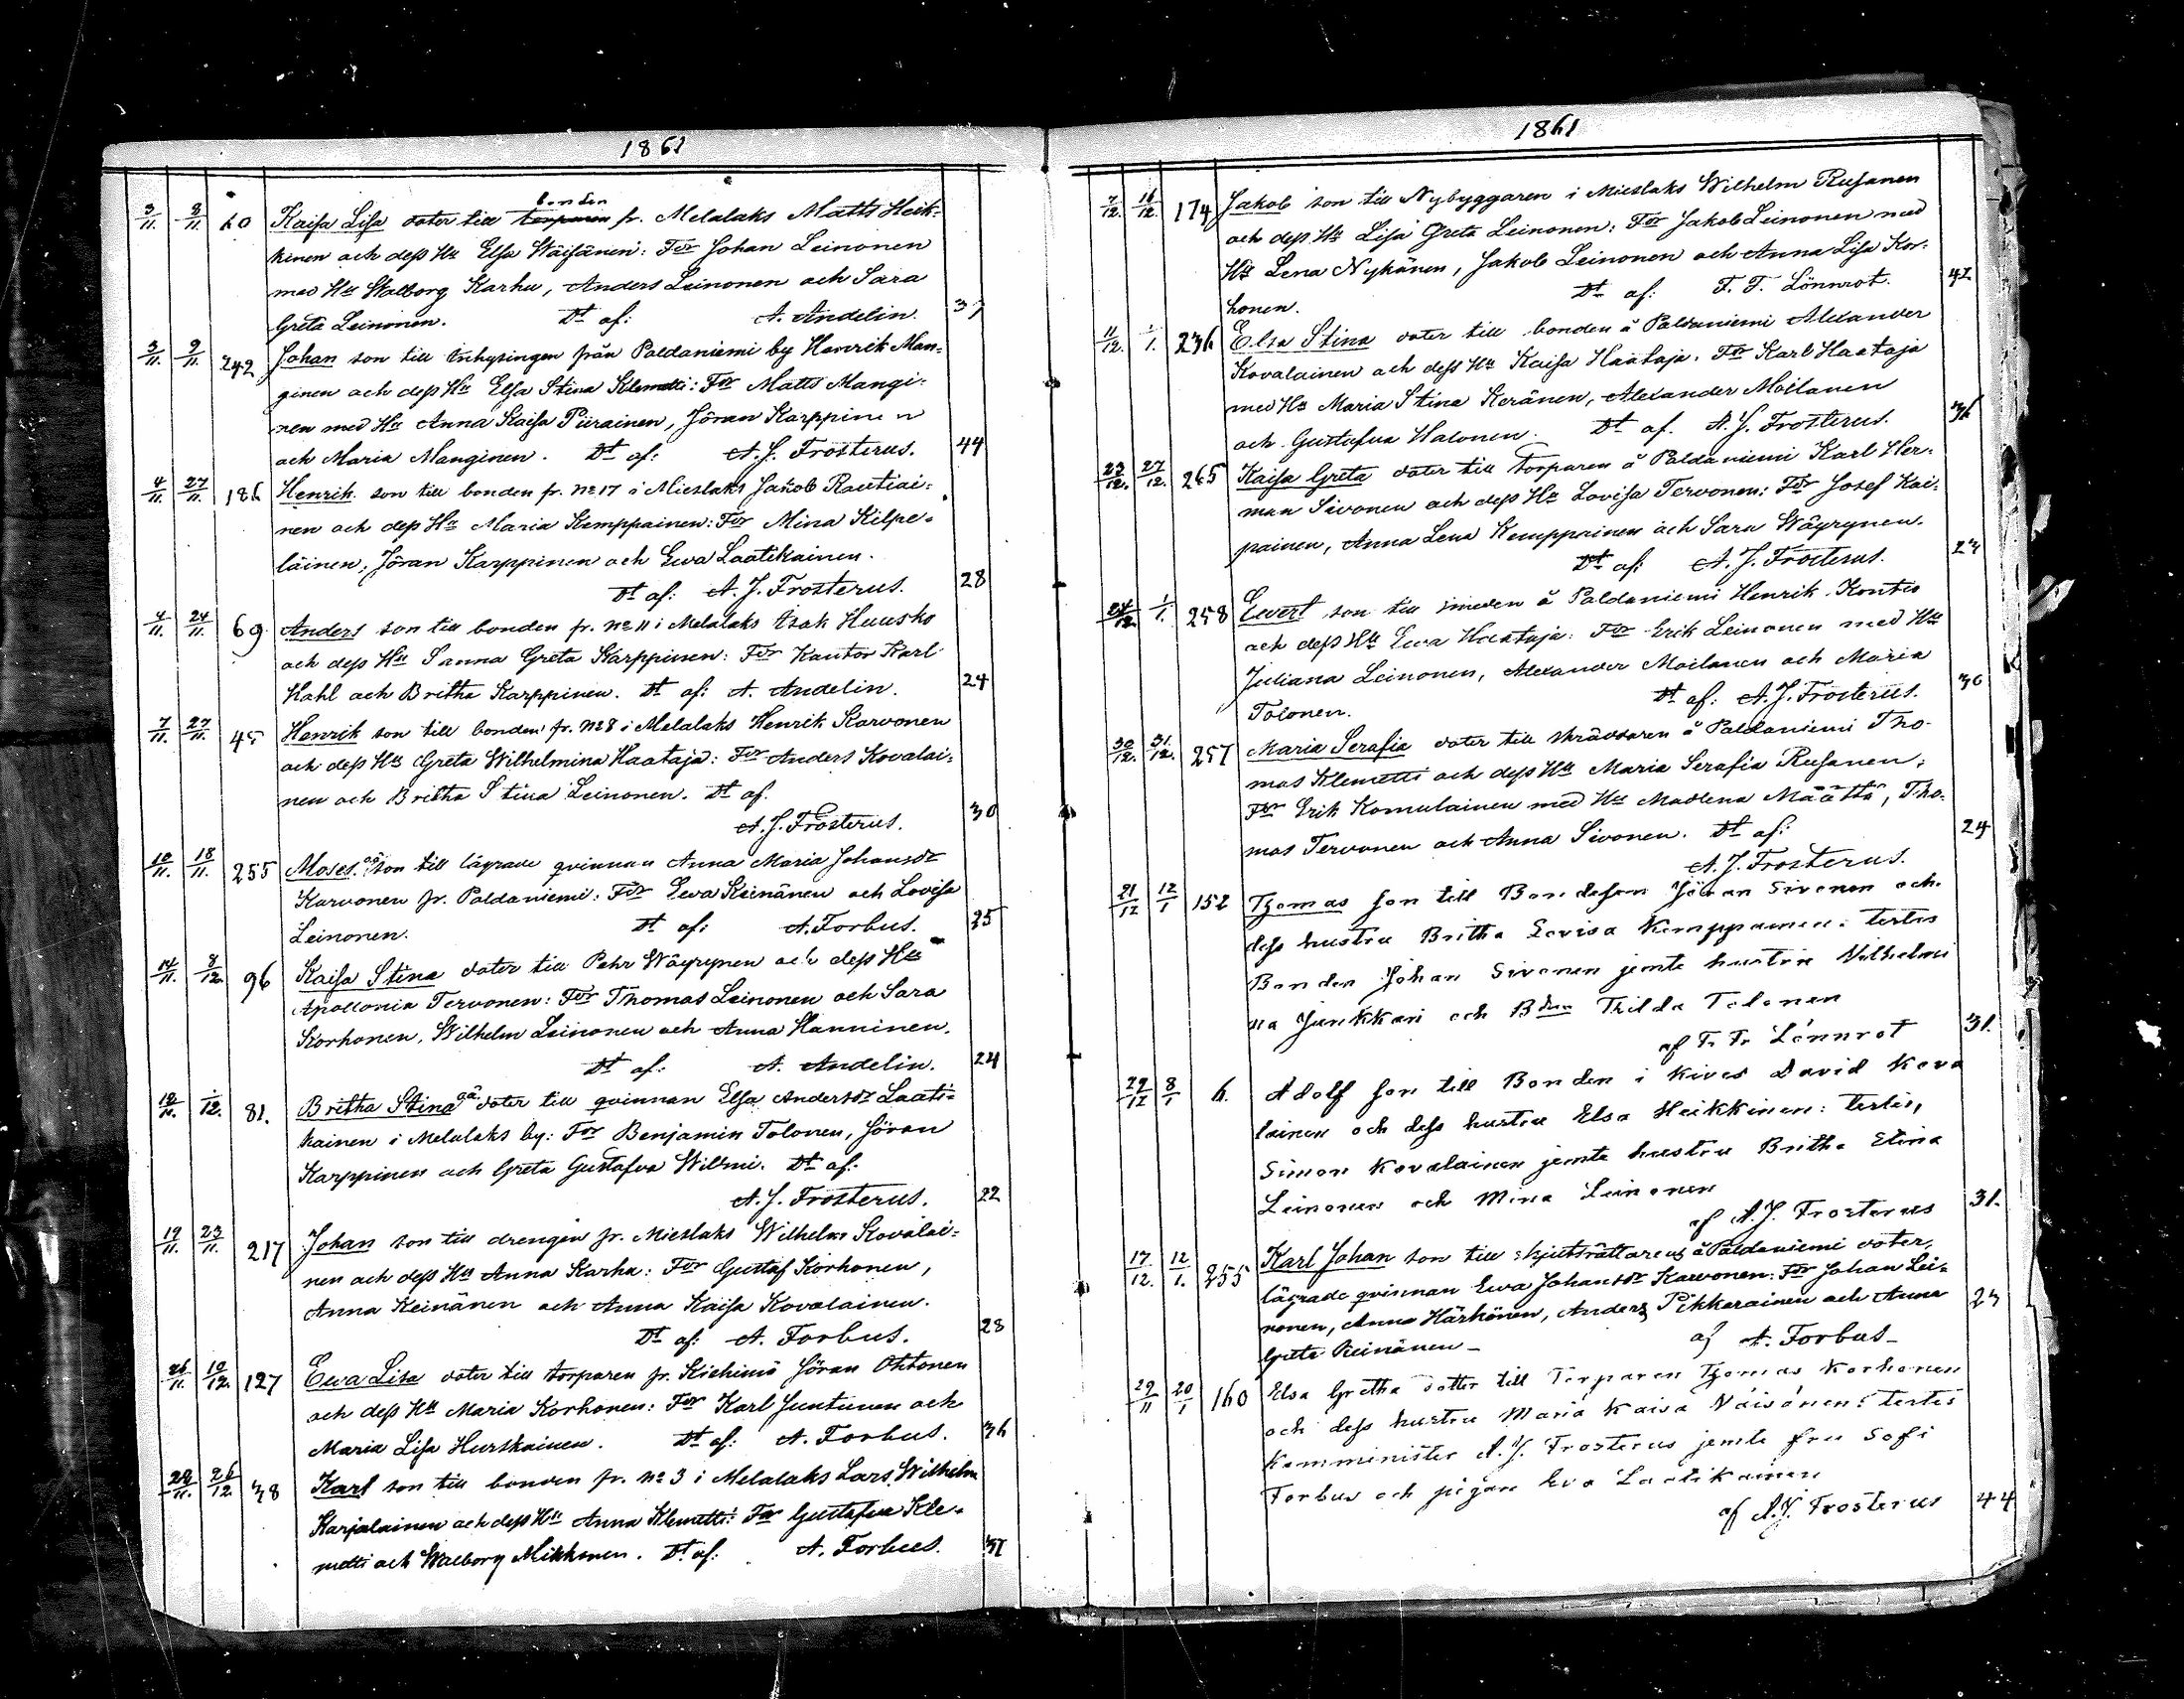 1861
3/11. 8/11. 60 Kaisa Lisa doter till torparen bonden fr. Melalaks Matts Heik-
kinen och dess Hu Elsa Wäisänen: Fdr Johan Leinonen
med Hu Walborg Karhu, Anders Leinonen och Sara
Greta Leinonen. Dt af: A. Andelin. 37
3/11. 9/11. 242 Johan son till inhysingen från Paldaniemi by Henrik Man-
ginen och dess Hu Elsa Stina Klemetti: Fdr Matts Mangi-
nen med Hu Anna Kaisa Piirainen, Jöran Karppinen
och Maria Manginen. Dt af: A. J. Frosterus. 44
4/11. 27/11. 186 Henrik son till bonden fr. No 17 i Mieslaks Jakob Rautiai-
nen och dess Hu Maria Kemppainen: Fdr Mina Kilpe-
läinen, Jöran Karppinen och Ewa Laatikainen.
Dt af: A. J. Frosterus. 28
4/11. 24/11. 69. Anders son till bonden fr. No 11 i Melalaks Isak Huusko
och dess Hu Sanna Greta Karppinen: Fdr Kantor Karl
Hahl och Britha Karppinen. Dt af: A. Andelin. 24
7/11. 27/11. 45 Henrik son till bonden fr. No 8 i Melalaks Henrik Karvonen
och dess Hu Greta Wilhelmina Haataja: Fdr Anders Kovalai-
nen och Britha Stina Leinonen. Dt af.
A. J. Frosterus. 30
10/11. 18/11. 255 Moses. oä son till lägrade qvinnan Anna Maria Johansdr
Karvonen fr. Paldaniemi: Fdr Ewa Keinänen och Lovisa
Leinonen. Dt af: A. Forbus. 25
14/11. 8/12. 96 Kaisa Stina doter till Pehr Wäyrynen och dess Hu
Apollonia Tervonen: Fdr Thomas Leinonen och Sara
Korhonen, Wilhelm Leinonen och Anna Hanninen.
Dt af: A. Andelin. 24
12. 81. Britha Stina oä doter till qvinnan Elsa Andersdr Laati-
kainen i Melalaks by: Fdr Benjamin Tolonen, Jöran
Karppinen och Greta Gustafva Wilmi. Dt af:
A. J. Frosterus. 22
19/11. 23/11. 217 Johan son till drengen fr. Mieslaks Wilhelm Kovalai-
nen och dess Hu Anna Karhu: Fdr Gustaf Korhonen,
Anna Keinänen och Anna Kaisa Kovalainen.
Dt af: A. Forbus. 28
26/11. 10/12. 127 Ewa Lisa doter till torparen fr. Kiehimä Jöran Ohtonen
och dess Hu Maria Korhonen: Fdr Karl Juntunen och
Maria Lisa Hurskainen. Dt af: A. Forbus. 36
29/11. 26/12. 38 Karl son till bonden fr. No 3 i Melalaks Lars Wilhelm
Karjalainen och dess Hu Anna Klemetti: Fdr Gustafva Kle-
metti och Walborg Mikkonen. Dt af: A. Forbus.
1861
7/12. 16/12. 174 Jakob son till Nybyggaren i Mieslaks Wilhelm Rusanen
och dess Hu Lisa Greta Leinonen: Fdr Jakob Leinonen med
Hu Lena Nykänen, Jakob Leinonen och Anna Lisa Kor-
honen. Dt af: F. F. Lönnrot. 42
11/12. 1/1. 236 Elsa Stina doter till bonden å Paldaniemi Alexander
Kovalainen och dess Hu Kaisa Haataja. Fdr Karl Haataja
med Hu Maria Stina Keränen, Alexander Moilanen
och Gustafva Halonen. Dt af. A. J. Frosterus. 36
23/12. 27/12. 265 Kaisa Greta doter till torparen å Paldaniemi Karl Her-
man Sivonen och dess Hu Lovisa Tervonen: Fdr Josef Kai-
painen, Anna Lena Kemppainen och Sara Wäyrynen.
Dt af: A. J. Frosterus. 23
24/12. 1/1. 258 Evert son till smeden å Paldaniemi Henrik Kontio
och dess Hu Ewa Haataja: Fdr Erik Leinonen med Hu
Juliana Leinonen, Alexander Moilanen och Maria
Tolonen. Dt af: A. J. Frosterus. 30
30/12. 31/12. 257 Maria Serafia doter till skräddaren å Paldaniemi Tho-
mas Klemetti och dess Hu Maria Serafia Rusanen;
Fdr Erik Komulainen med Hu Madlena Määttä, Tho-
mas Tervonen och Anna Sivonen. Dt af:
A. J. Frosterus. 24
21/12 12/1 152 Thomas son till Bondeson Jöran Sivonen och
dess hustru Britha Lovisa Kemppainen: testes
Bonden Johan Sivonen jemte hustru Vilhelmi
na Junkkari och Bdn Thilda Tolonen
af F. F. Lönnrot 31.
29/12 8/1 6. Adolf son till Bonden i Kives David Kova
lainen och dess hustru Elsa Heikkinen: testes,
Simon Kovalainen jemte hustru Britha Stina
Leinonen och Mina Leinonen
af A. J. Frosterus 31.
17/12. 12/1. 255 Karl Johan son till skjutsrättarens å Paldaniemi doter,
lägrade qvinnan Ewa Johansdr Karvonen: Fdr Johan Lei-
nonen, Anna Härkönen, Anders Pikkarainen och Anna
Greta Keinänen – af A. Forbus – 23
29/11 20/1 160 Elsa Gretha dotter till Torparen Thomas Korhonen
och dess hustru Maria Kaisa Väisänen: testes
Komminister A. J. Frosterus jemte fru Sofi
Forbus och pigan Eva Laatikainen
af A. J. Frosterus 44